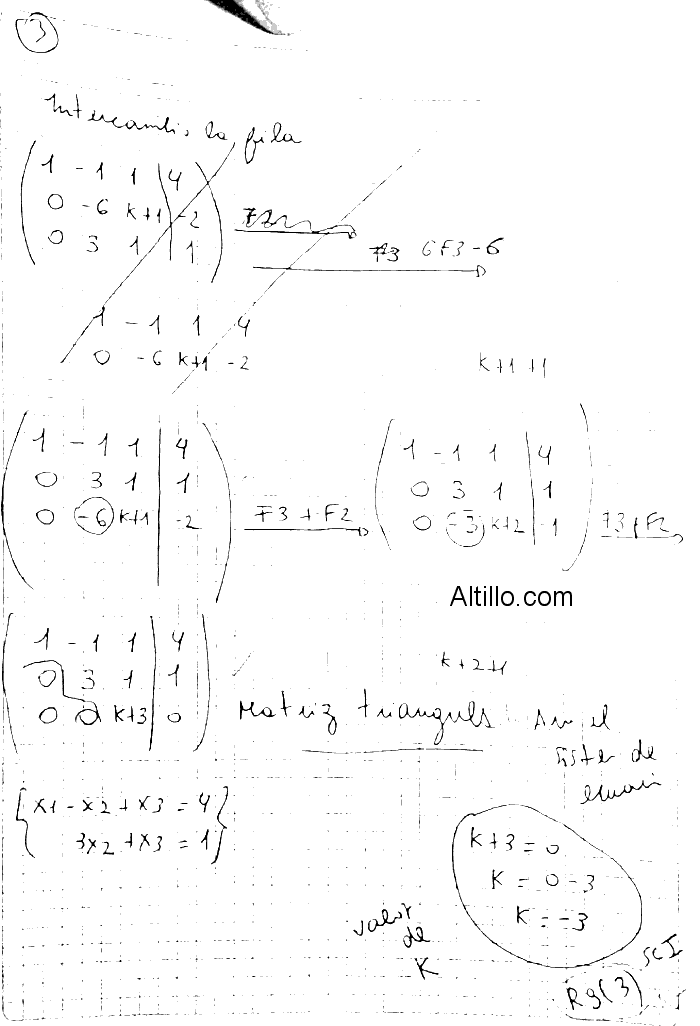 3
Intercambio la fila
1 -1 1 | 4
0 -6 k+1 | -2
0 3 1 | 1
F3 6F3-6
1 -1 1 4
0 -6 k+1 -2
k+1+1
1 -1 1 | 4
0 3 1 | 1
0 -6 k+1 | -2
F3 + F2
1 -1 1 | 4
0 3 1 | 1
0 -3 k+2 | -1
F3+F2
Altillo.com
1 -1 1 | 4
0 3 1 | 1
0 0 k+3 | 0
k+2+1
Matriz trianguls
el
de
{x1 - x2 + x3 = 4}
{3x2 + x3 = 1}
k+3 = 0
k = 0-3
k = -3
valor
de
k
SCI
Rg(3)